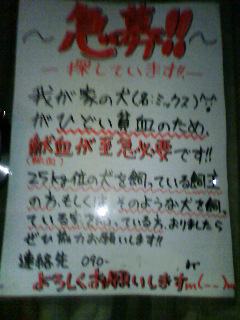 ～急募!!～
ー探しています!!ー
我が家の犬(名:ミックス)
がひどい貧血のため、
献血が至急必要です!!
25kg位の犬を飼っている飼主
の方、もしくは そのような犬を飼っ
ている 知っている方、おりましたら
ぜひ協力お願いします!!
連絡先 090-
よろしくお願いしますm(--)m